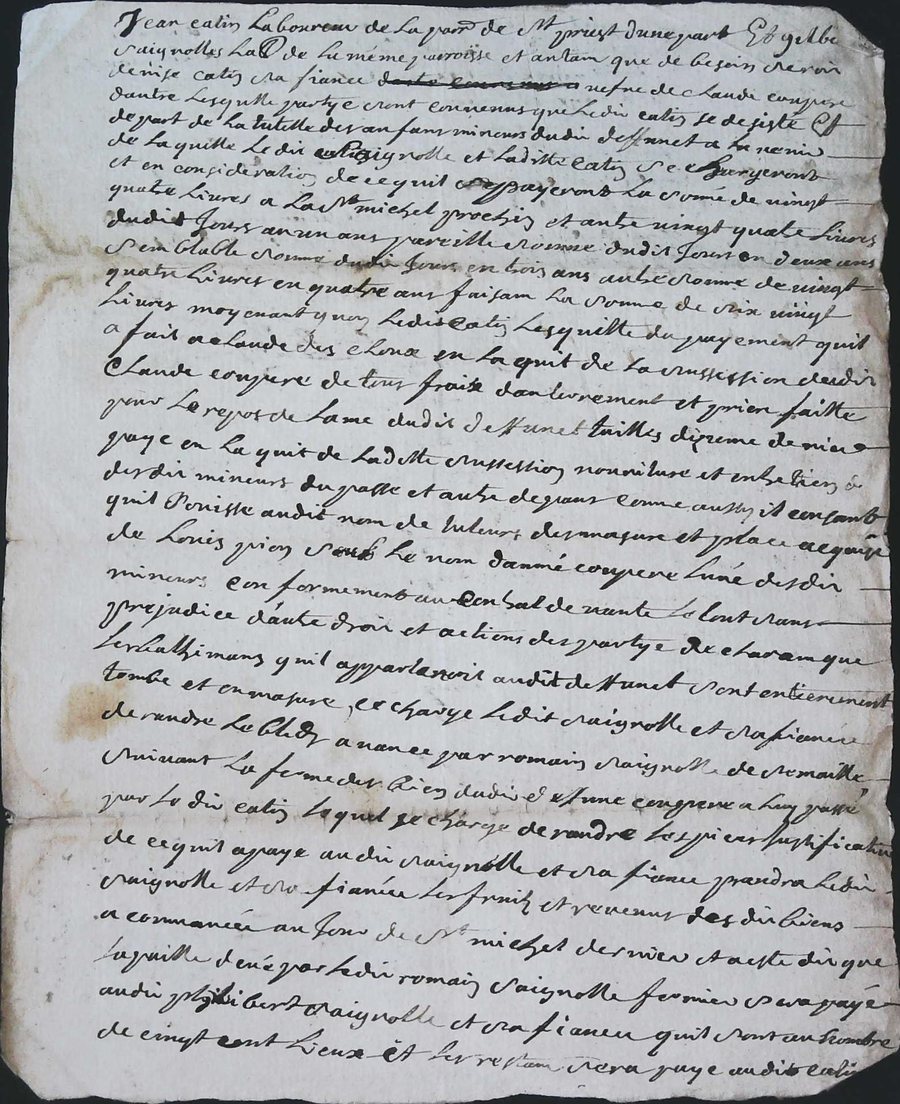 Jean catin Laboureur de La par.^e de S^t priest dune part Et gilbe
Saignolles La^b de La méme parroisse et antam que de besoin seroit
denise catin sa fiance vefve de claude coupere
dautre Lesquelle partye sont convenus que Ledit catin se desiste Et
depart de La tutelle des anfans mineurs dudit deffunct a La
de La quelle Le dit Saignolle et Laditte Catin se chargeront
et en consideration de ce quil payeront La some de vingt
quatre Livres a La St michel prochin et autre vingt quatre Livres
dudit Jours an un ans pareille somme dudit Jours en deux ans
semblable somme dudit Jours en trois ans autre somme de vingt
quatre Livres en quatre ans faisam La somme de six vingt
Livres moyenant quoy Ledit Catin Lesquitte du payement quil
a fait a claude des cloux en La quit de La sussession dudit
Claude coupere de tous fraix danterrement et prier faitte
pour Le repos de Lame dudit deffunct tailles dixieme denier
paye en La quit de Laditte sussession nouriture et entretien
desdit mineurs du passe et autre depans comme aussy il consant
quil Jouisse audit nom de tuteurs des masure et place acquise
de Louis pion soub Le nom danne coupere Lune desdit
mineurs conformement au contrat de vante Le tout sans
prejudice dautre droit et actions des partye declaram que
Les bathimans quil appartenoit audit deffunct sont entierement
tombe et en masure, ce charge Ledit saignolle et sa fiancée
de randre Le bled avance par romain saignolle de semaille
suivant La ferme des bien dudit deffunt coupere a Luy passé
par Le dit catin Lequel se charge de randre Les pieces Justificative
de ce quil a paye audit saignolle et sa fiance prandra Ledit
saignolle et sa fiancée Les fruits et revenus desdit biens
a commancée au Jour de St michel dernier et a este dit que
La paille deue par Ledit romain saignolle fermier sera payé
audit philibert saignolle et sa fiancee quil sont au nombre
de cinqt cent Lieux et Les restam sera paye audit catin